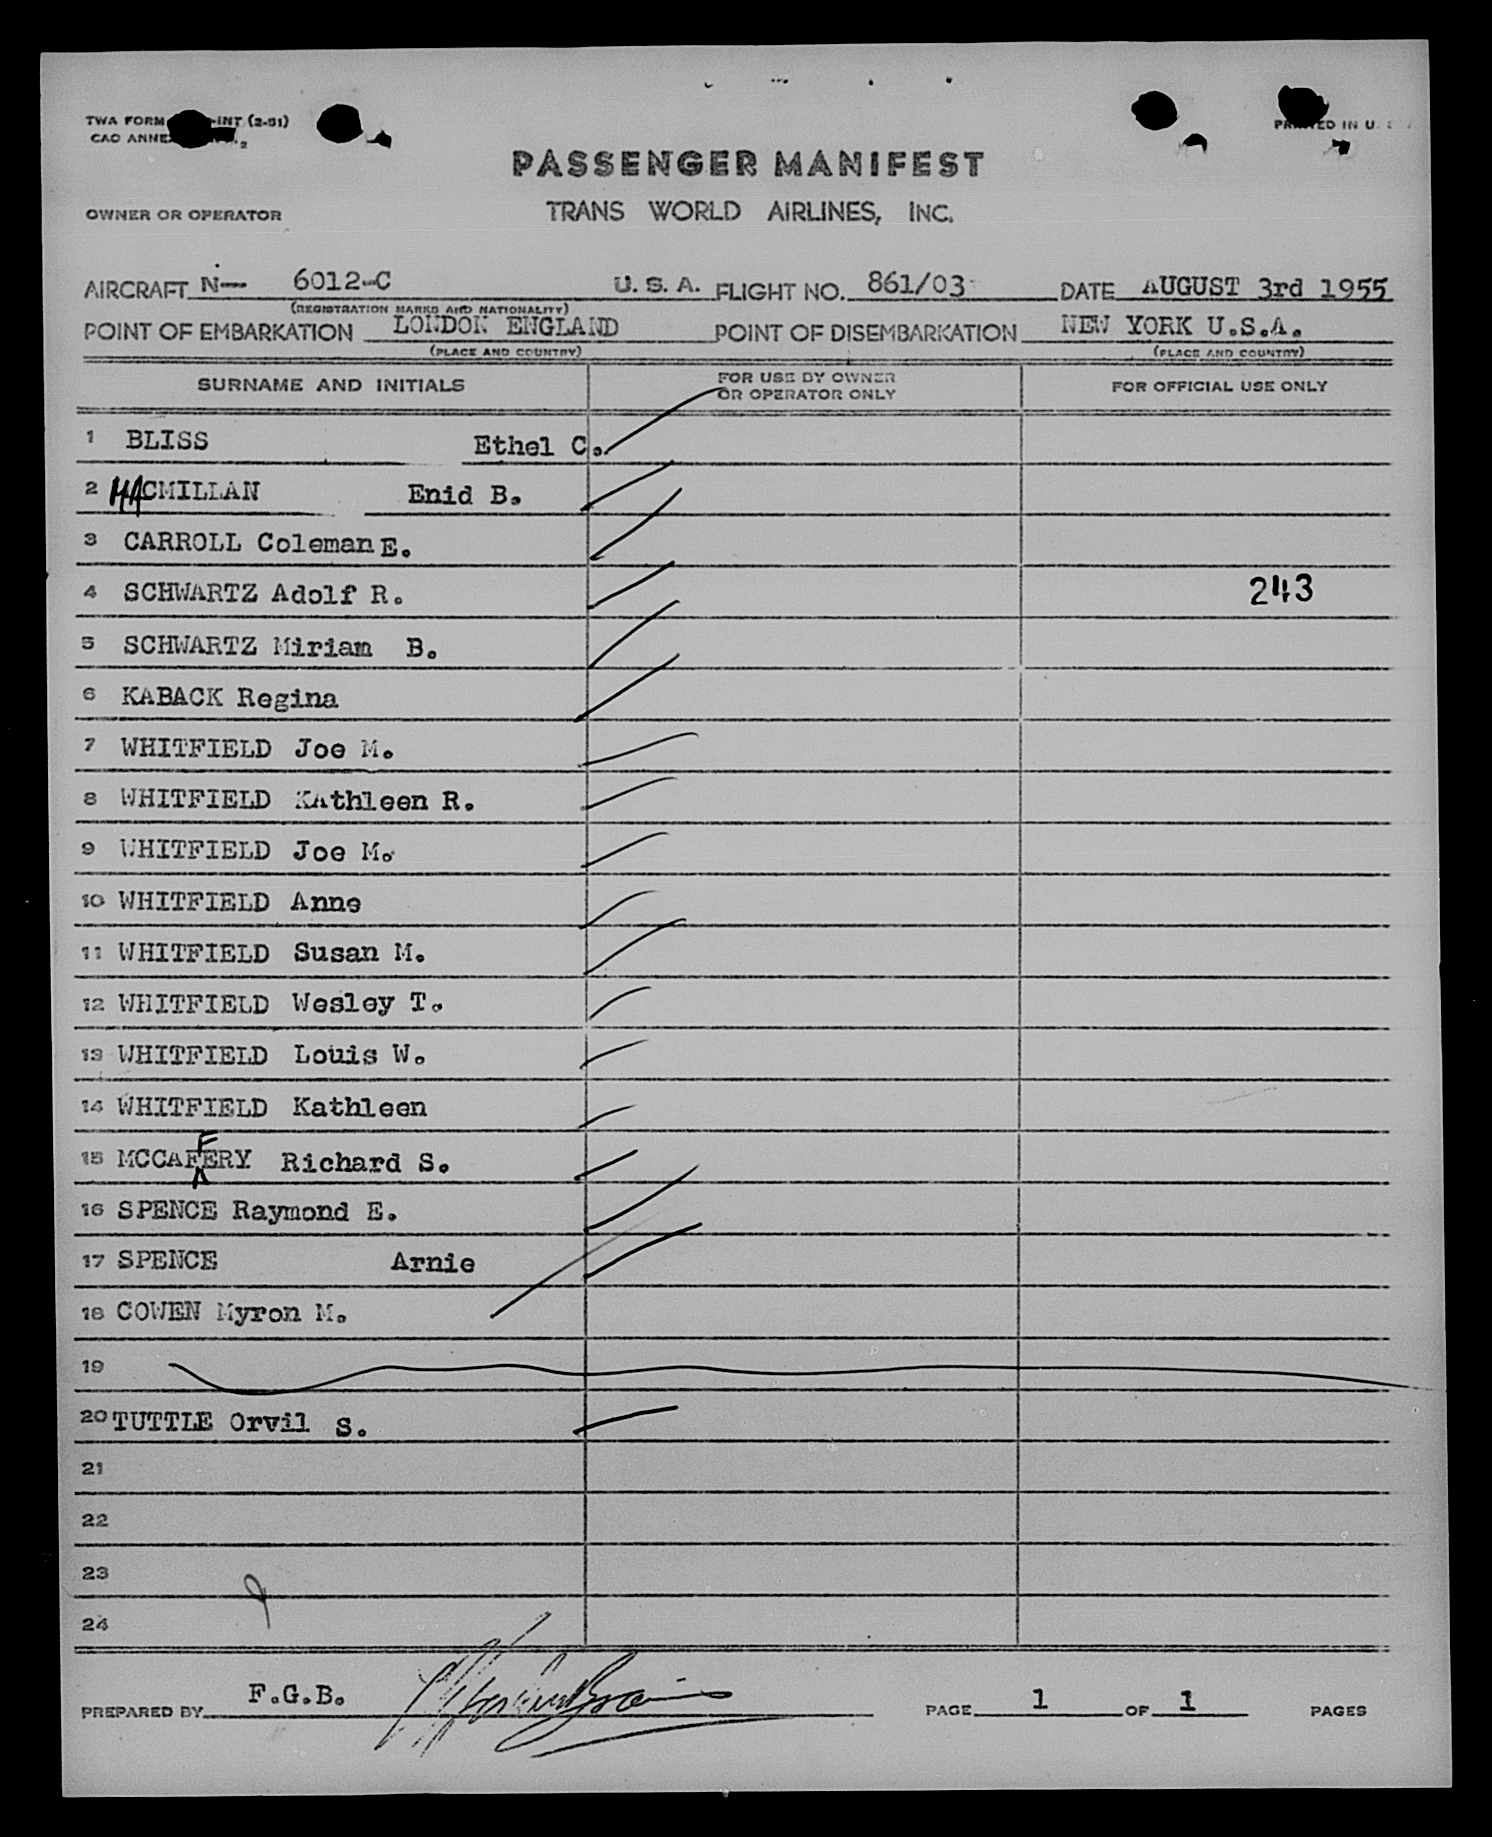 TWA FORM -INT (2-51)
CAO ANNEX
PRINTED IN U. S.
PASSENGER MANIFEST
OWNER OR OPERATOR
TRANS WORLD AIRLINES, INC.
AIRCRAFT N-- 6012-C U. S. A. FLIGHT NO. 861/03 DATE AUGUST 3rd 1955
(REGISTRATION MARKS AND NATIONALITY)
POINT OF EMBARKATION LONDON ENGLAND POINT OF DISEMBARKATION NEW YORK U.S.A.
(PLACE AND COUNTRY) (PLACE AND COUNTRY)
SURNAME AND INITIALS FOR USE BY OWNER OR OPERATOR ONLY FOR OFFICIAL USE ONLY
1 BLISS Ethel C.
2 MACMILLAN Enid B.
3 CARROLL Coleman E.
4 SCHWARTZ Adolf R. 243
5 SCHWARTZ Miriam B.
6 KABACK Regina
7 WHITFIELD Joe M.
8 WHITFIELD KAthleen R.
9 WHITFIELD Joe M.
10 WHITFIELD Anne
11 WHITFIELD Susan M.
12 WHITFIELD Wesley T.
13 WHITFIELD Louis W.
14 WHITFIELD Kathleen
15 MCCAFFERY Richard S.
16 SPENCE Raymond E.
17 SPENCE Arnie
18 COWEN Myron M.
19
20 TUTTLE Orvil S.
21
22
23
24
PREPARED BY F.G.B. PAGE 1 OF 1 PAGES